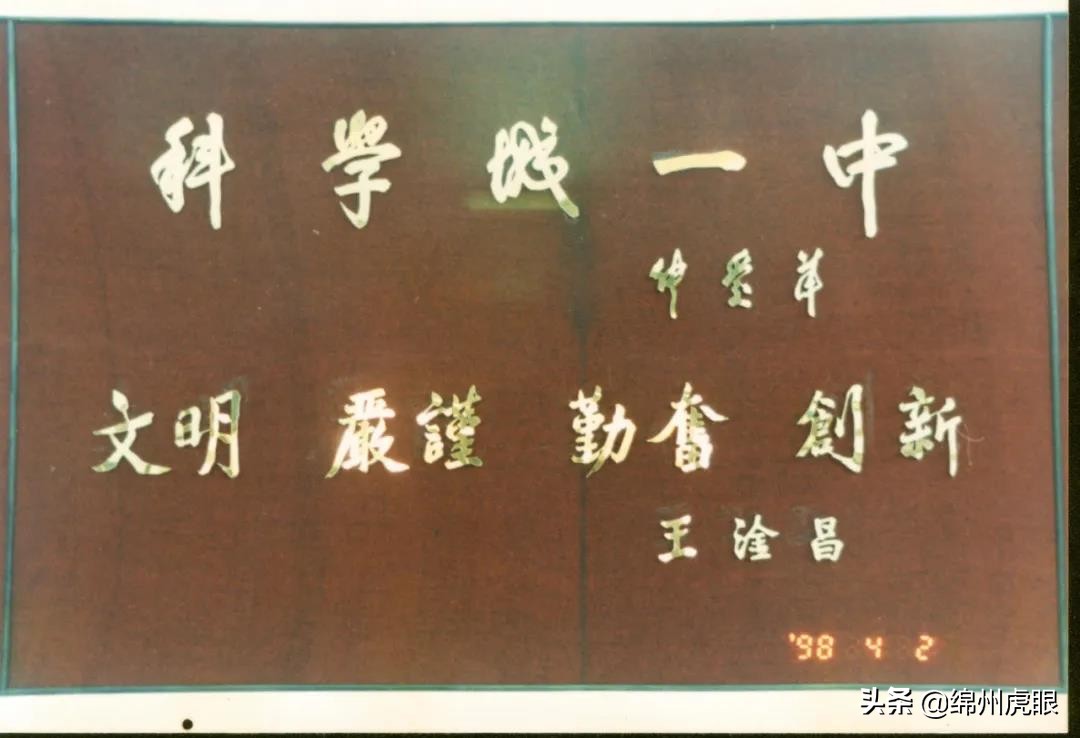 科學城一中
文明 嚴謹 勤奮 創新
王淦昌
'98 4 2
头条 @绵州虎眼